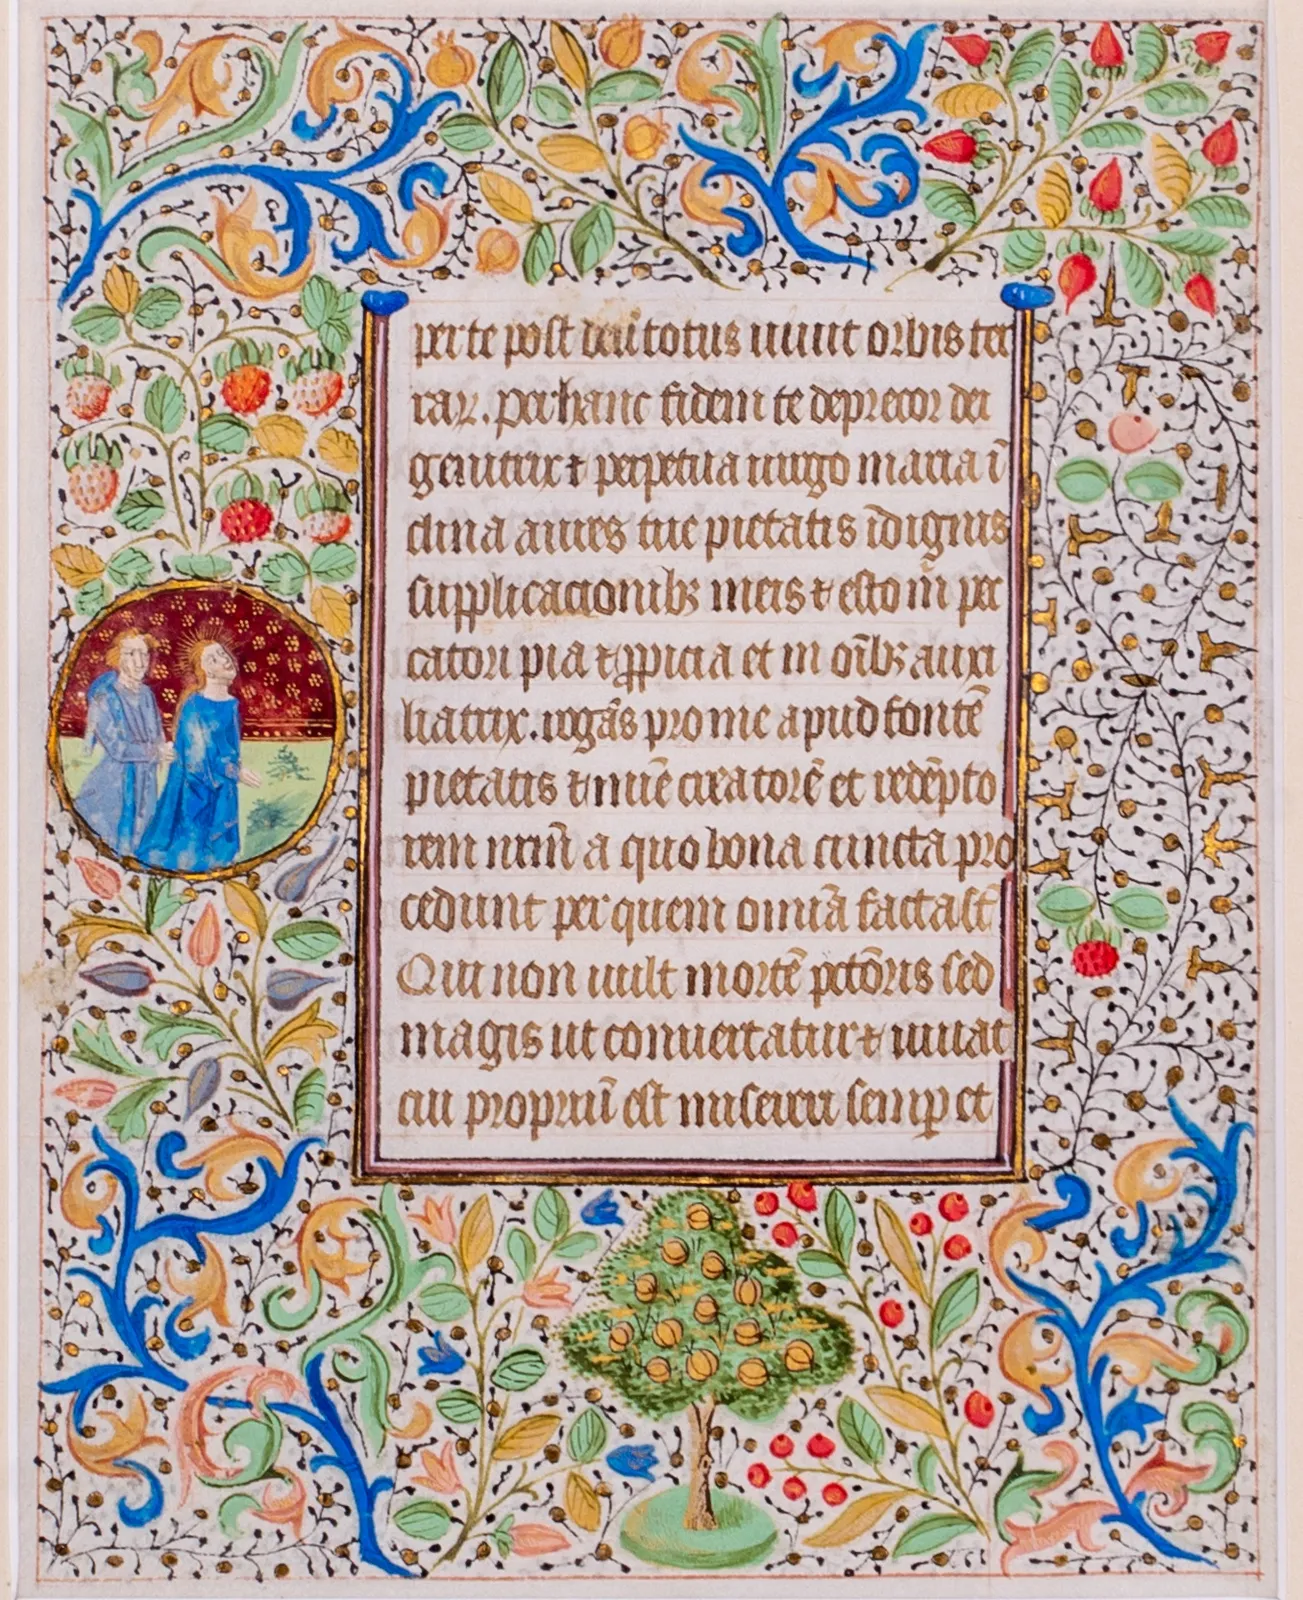 per te post deū totus uiuit orbis ter
raꝝ. Per hanc fidem te deprecor dei
genitrix ⁊ perpetua uirgo maria ī
clina aures tue pietatis īdignis
supplicacionibꝫ meis ⁊ esto m̄ pec
catori pia ⁊ ꝓpicia et in oībꝫ auxi
liatrix. rogās pro me apud fontē
pietatis ⁊ mūe creatorē et redēpto
rem nrm̄ a quo bona cuncta pro
cedunt per quem omīa facta st̄
Qui non uult mortē pctōris sed
magis ut conuertatur ⁊ uiuat
cui propriū est misereri semꝑ et